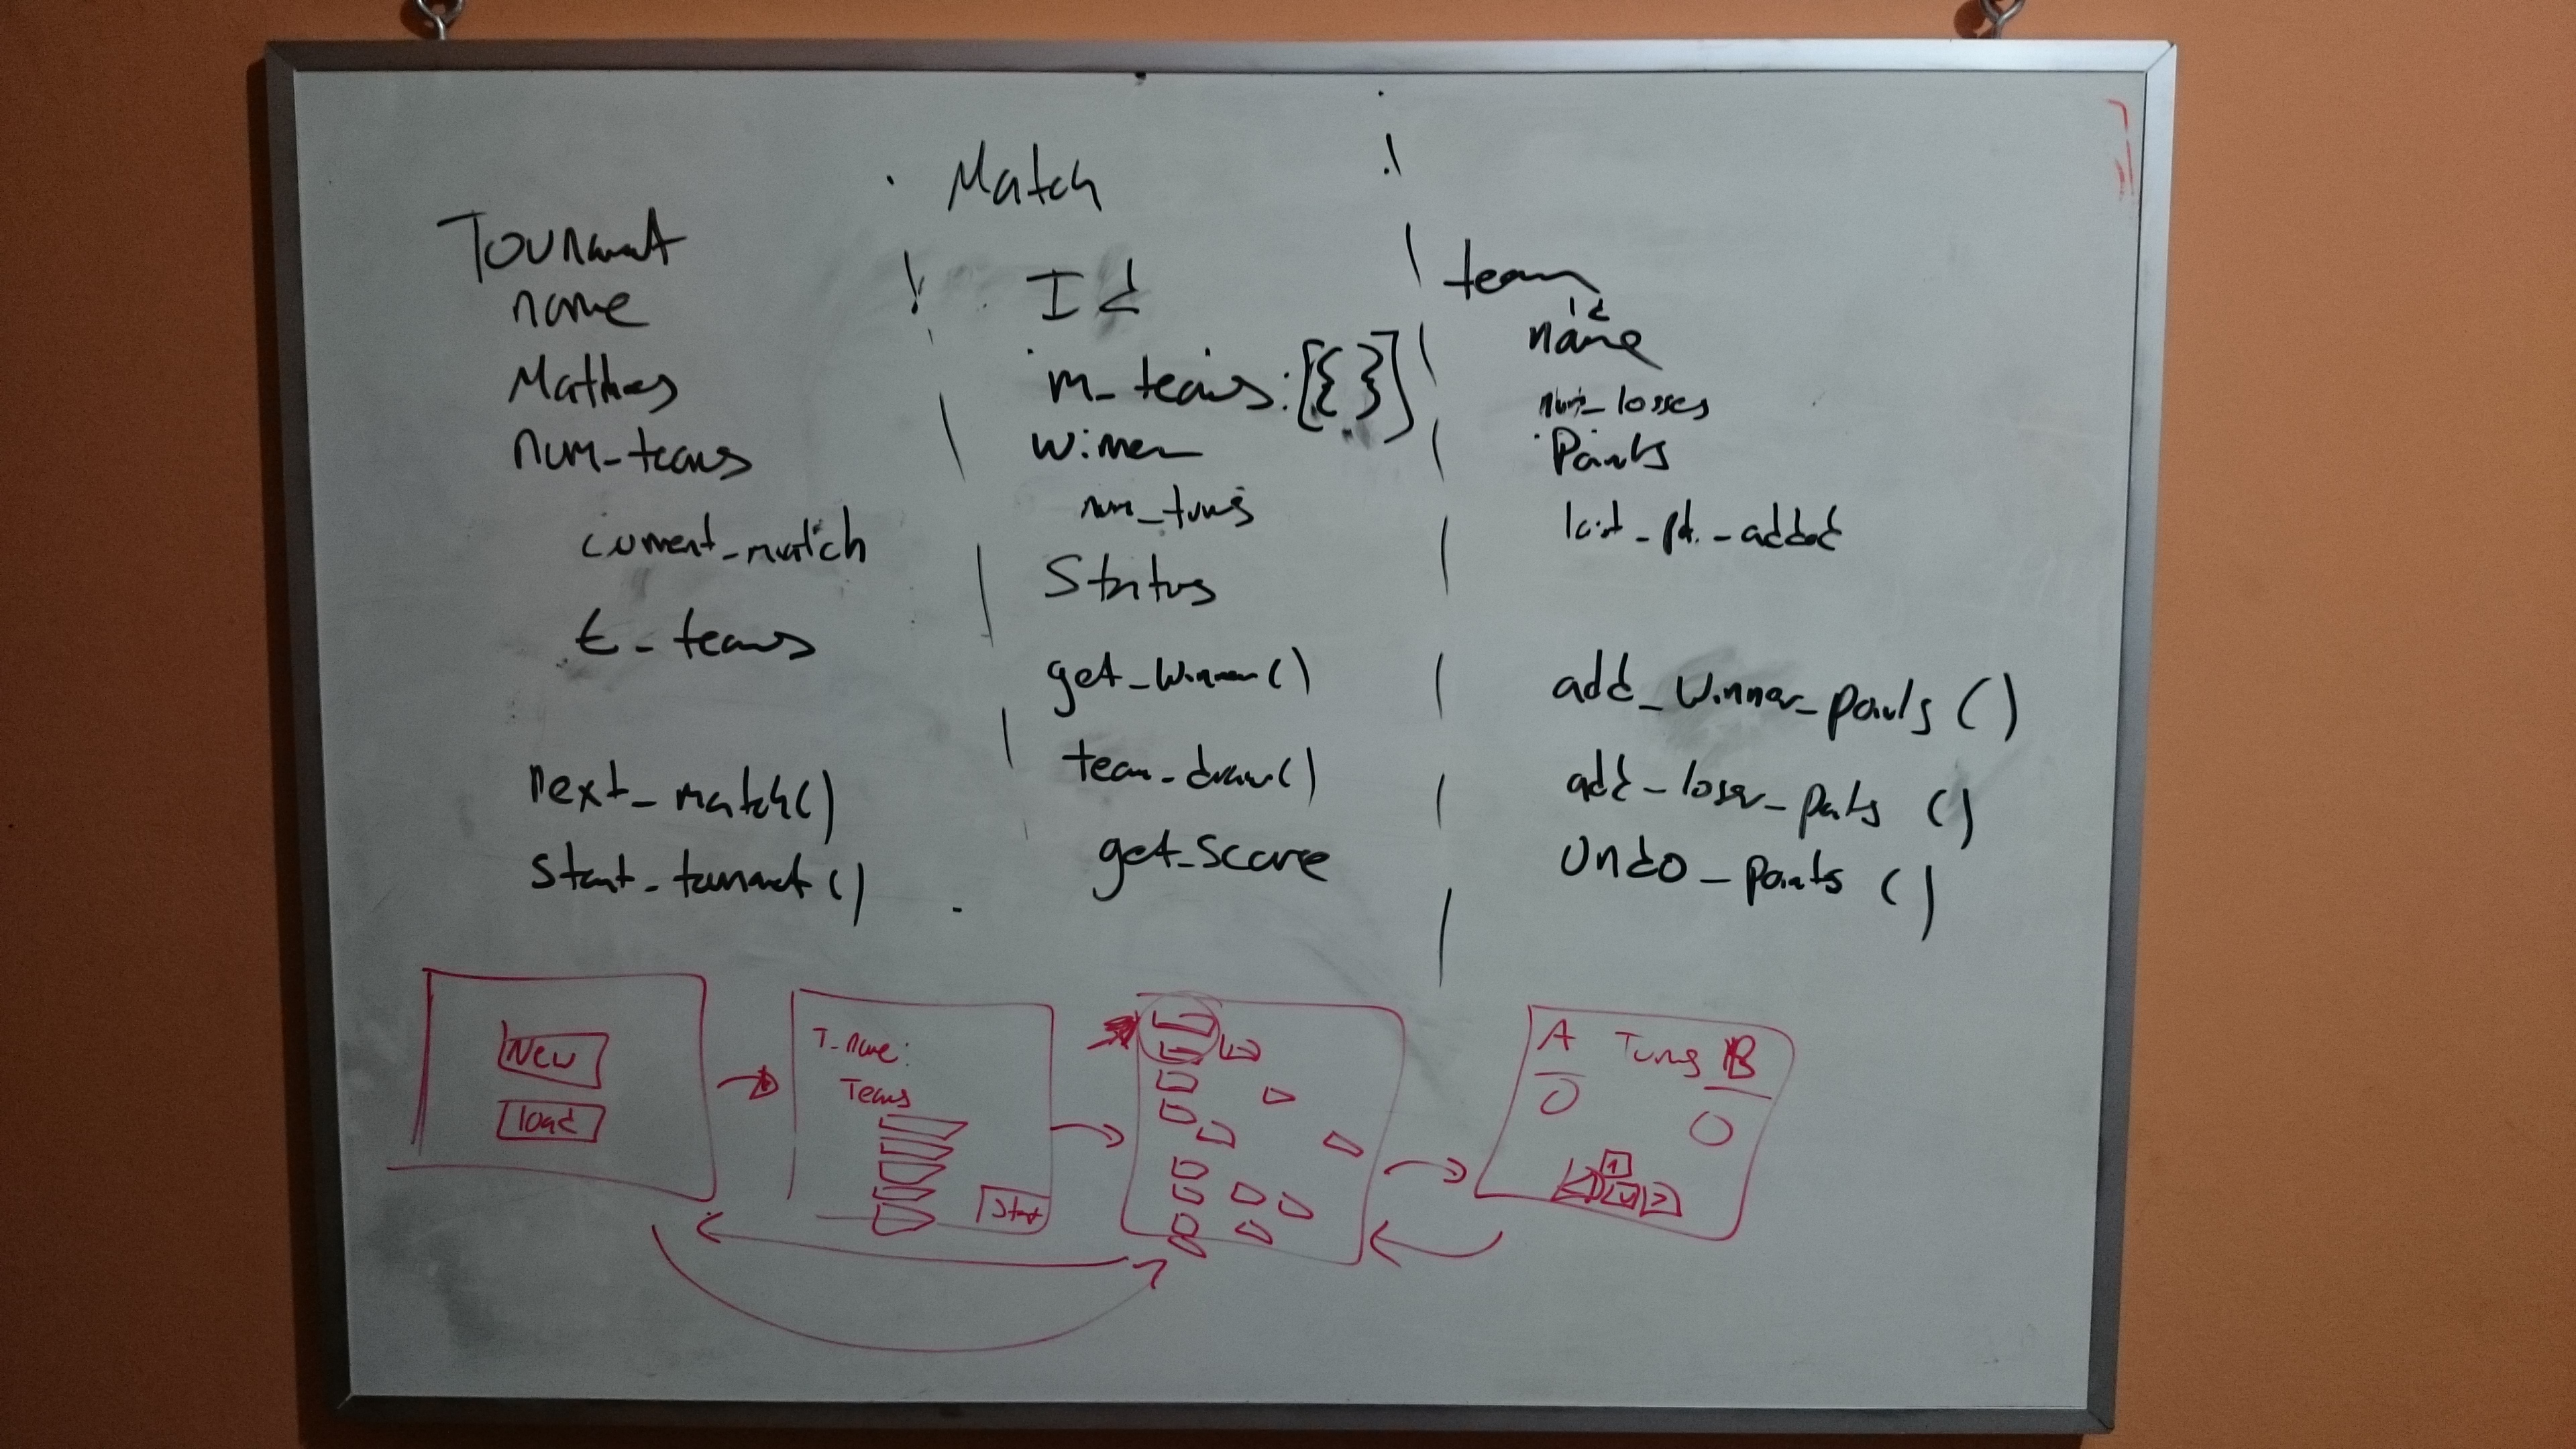 Tournamt
name
Matches
num_teams
current_match
t_teams
next_match()
start_tournamt()
Match
Id
m_teams:[{}]
winner
num_turns
Status
get_winner()
team_draw()
get_score
team
id
name
num_losses
Points
last_pt._added
add_winner_points()
add_loser_points()
Undo_points()
New
load
T_name:
Teams
Start
A Turns B
0 0